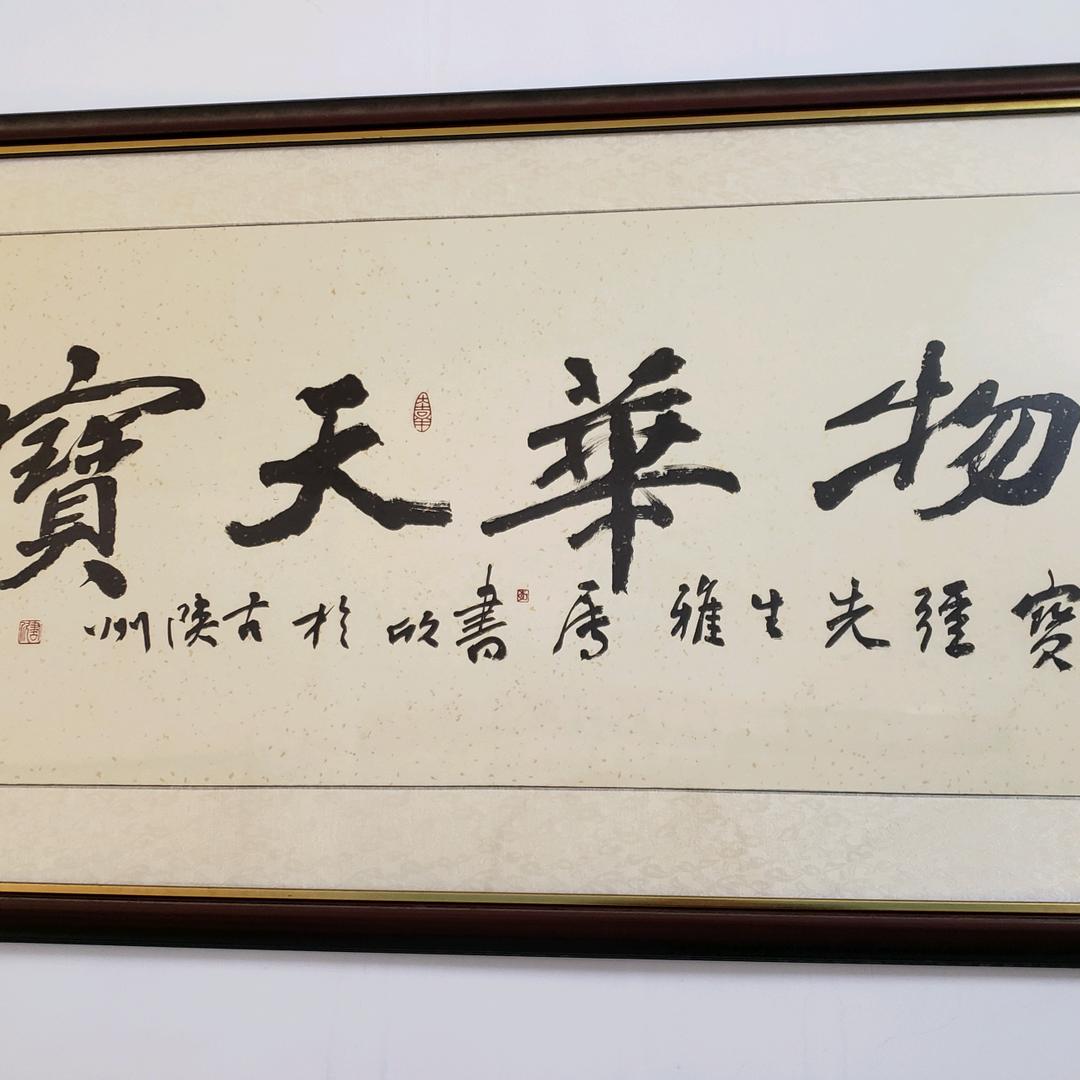 物華天寶
寶疆先生雅屬書欣於古陝州